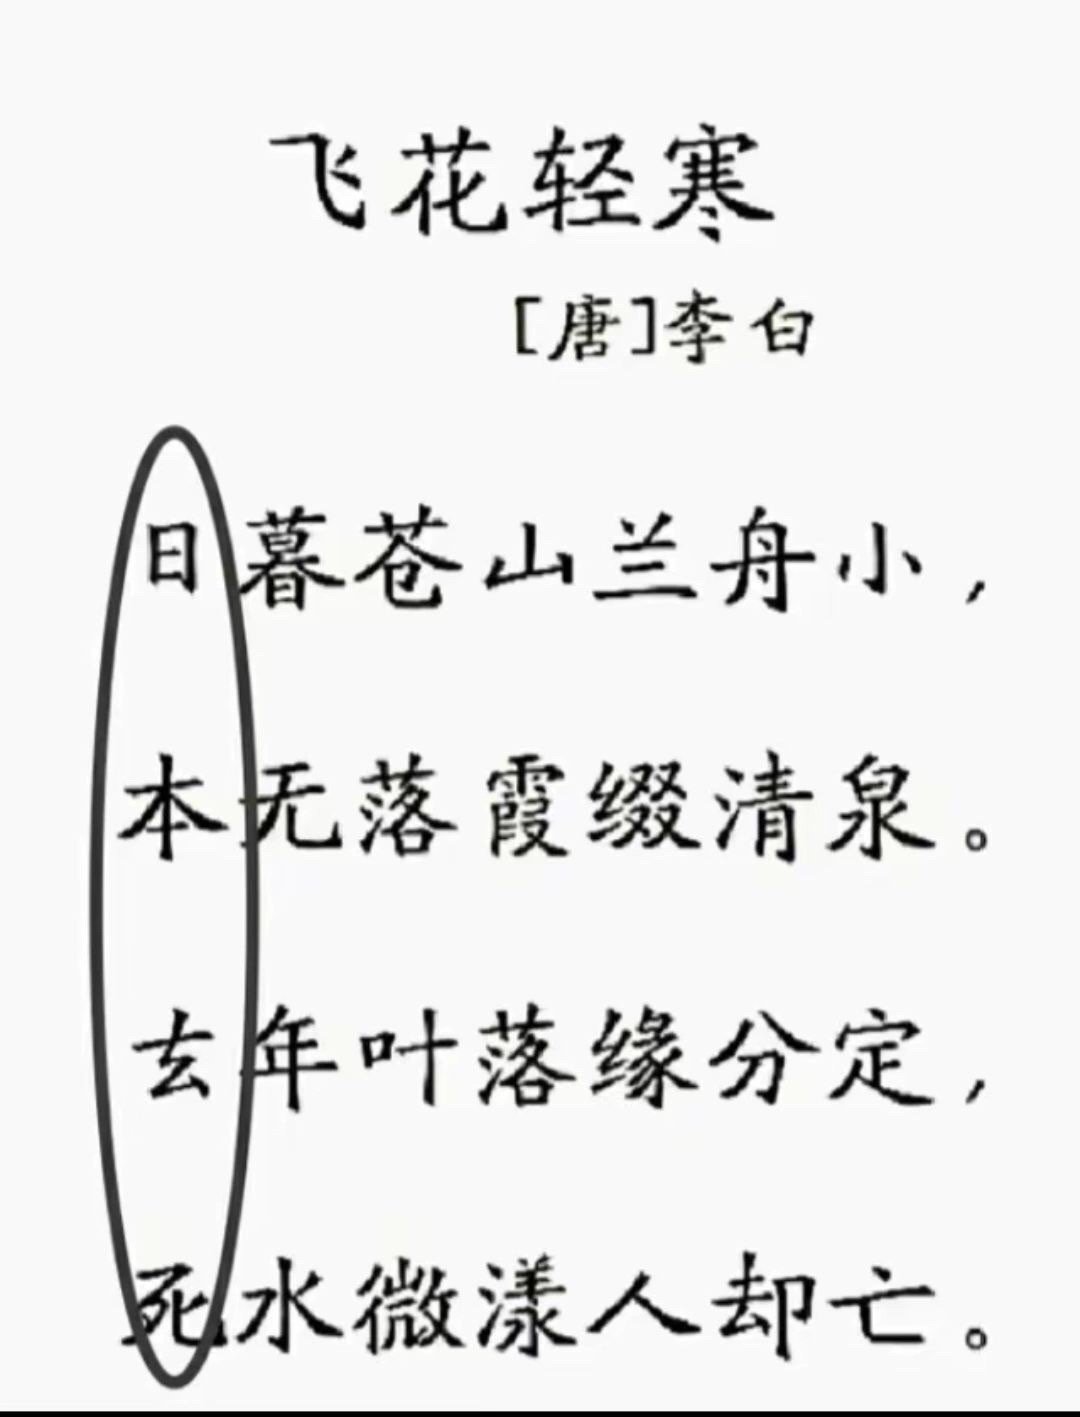 飞花轻寒
[唐]李白
日暮苍山兰舟小，
本无落霞缀清泉。
去年叶落缘分定，
死水微漾人却亡。